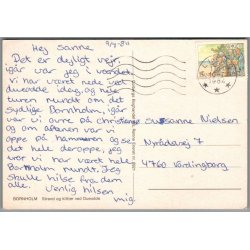 9/4-84
Hej Sanne
Det er dejligt vejr,
igår var jeg i vandet.
Vi har været nede ved
dueodde idag, og hele
turen rundt om det
sydlige Bornholm, igår
var vi ovre på christiansø
og om aftenen var vi
oppe på hammeren og se
det hele deroppe, jeg
tror vi har været hele
Bornholm rundt. Jeg
skulle hilse fra dem
alle. Venlig hilsen
mig.
Susanne Nielsen
Nyrådsvej 7
4760 Vordingborg
BORNHOLM Strand og klitter ved Dueodde